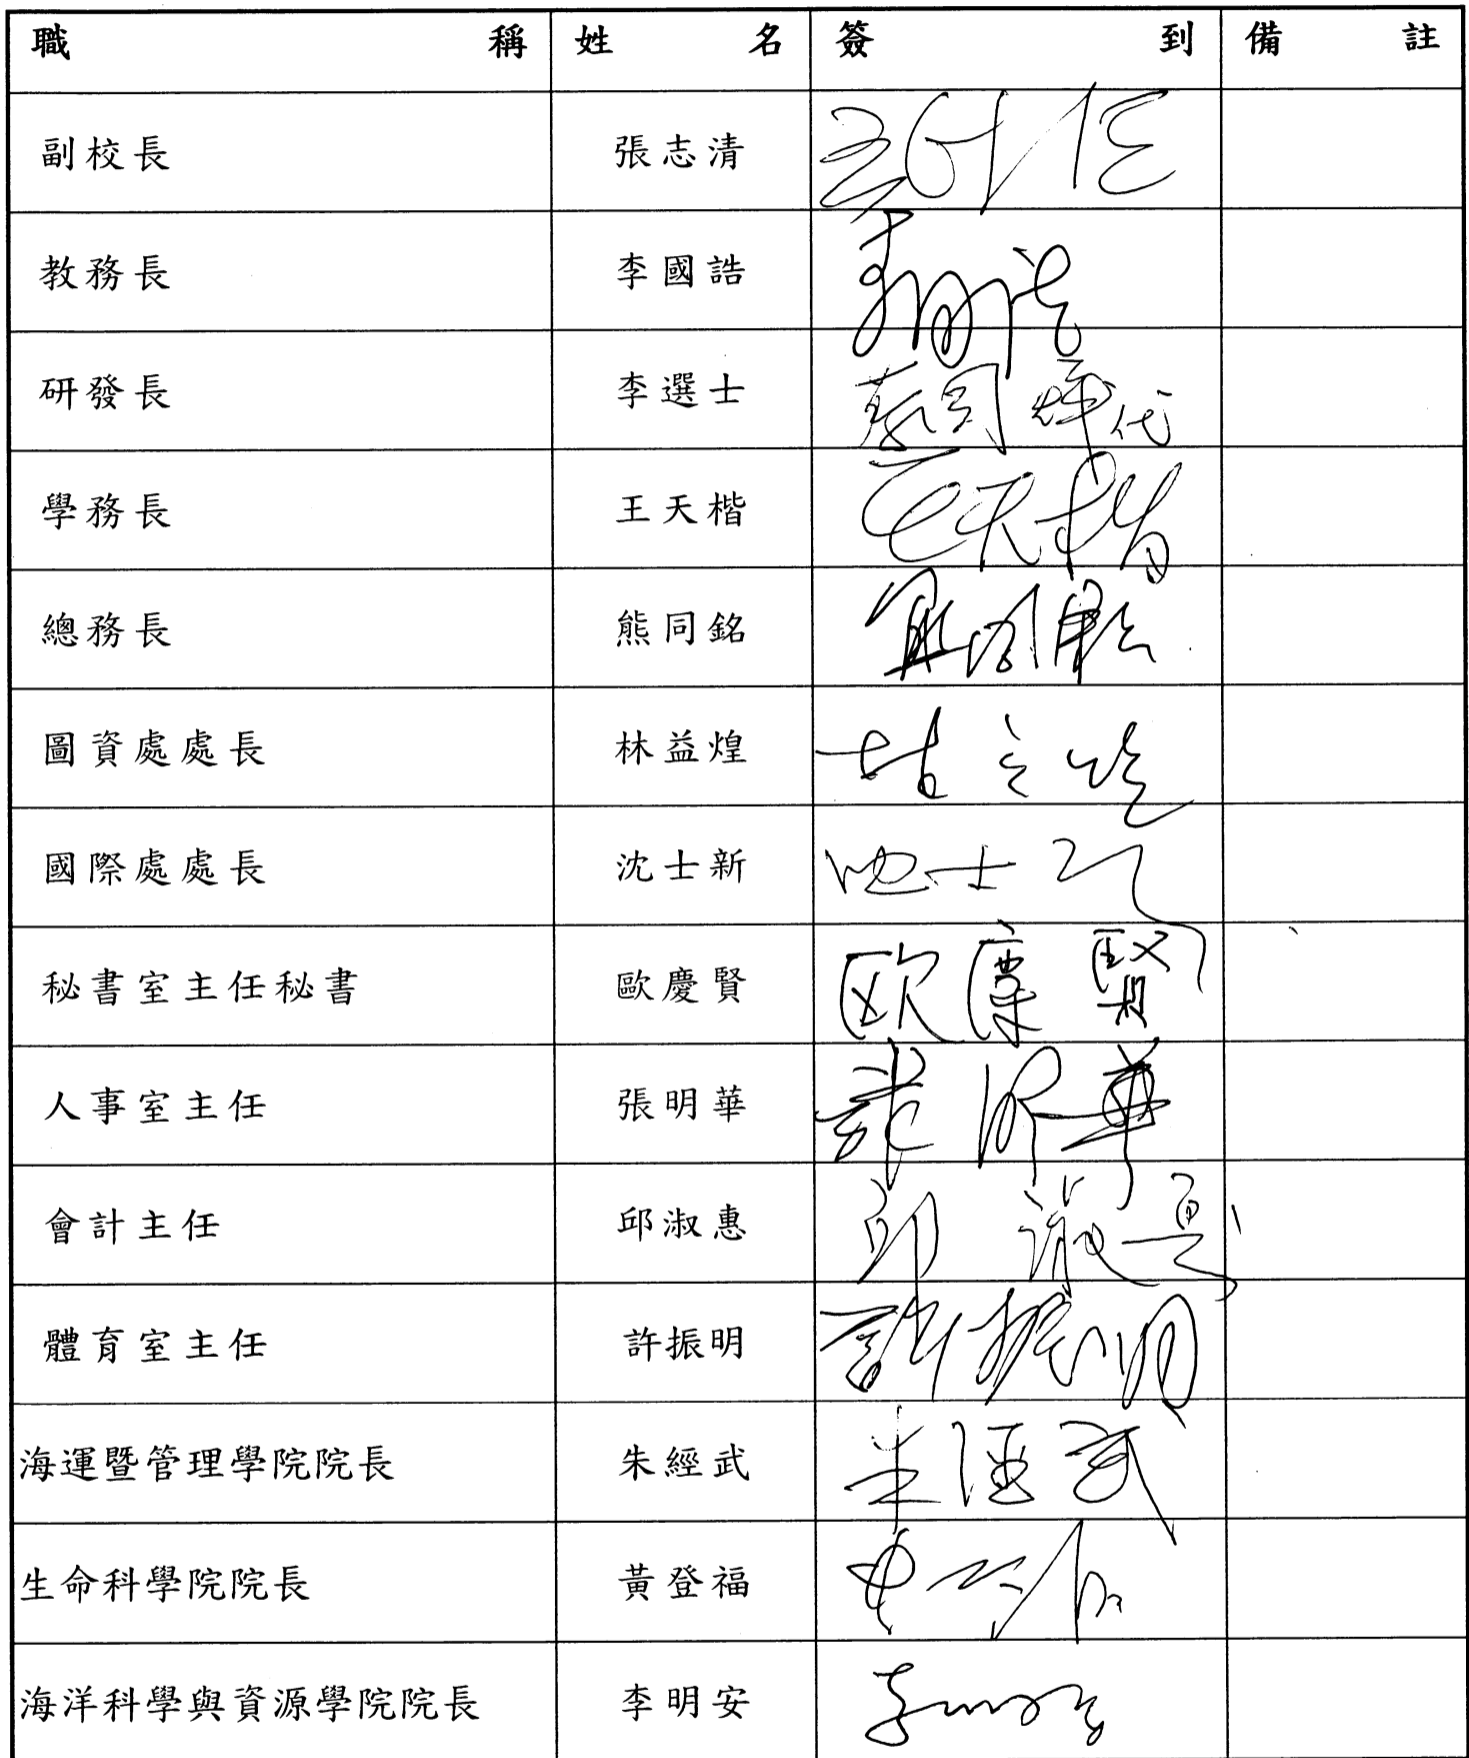 職稱 姓名 簽到 備註
副校長 張志清
教務長 李國誥
研發長 李選士 代
學務長 王天楷 王天楷
總務長 熊同銘
圖資處處長 林益煌
國際處處長 沈士新 沈士新
秘書室主任秘書 歐慶賢 欧慶賢
人事室主任 張明華 張明華
會計主任 邱淑惠 邱淑惠
體育室主任 許振明 許振明
海運暨管理學院院長 朱經武 朱經武
生命科學院院長 黃登福
海洋科學與資源學院院長 李明安 李明安